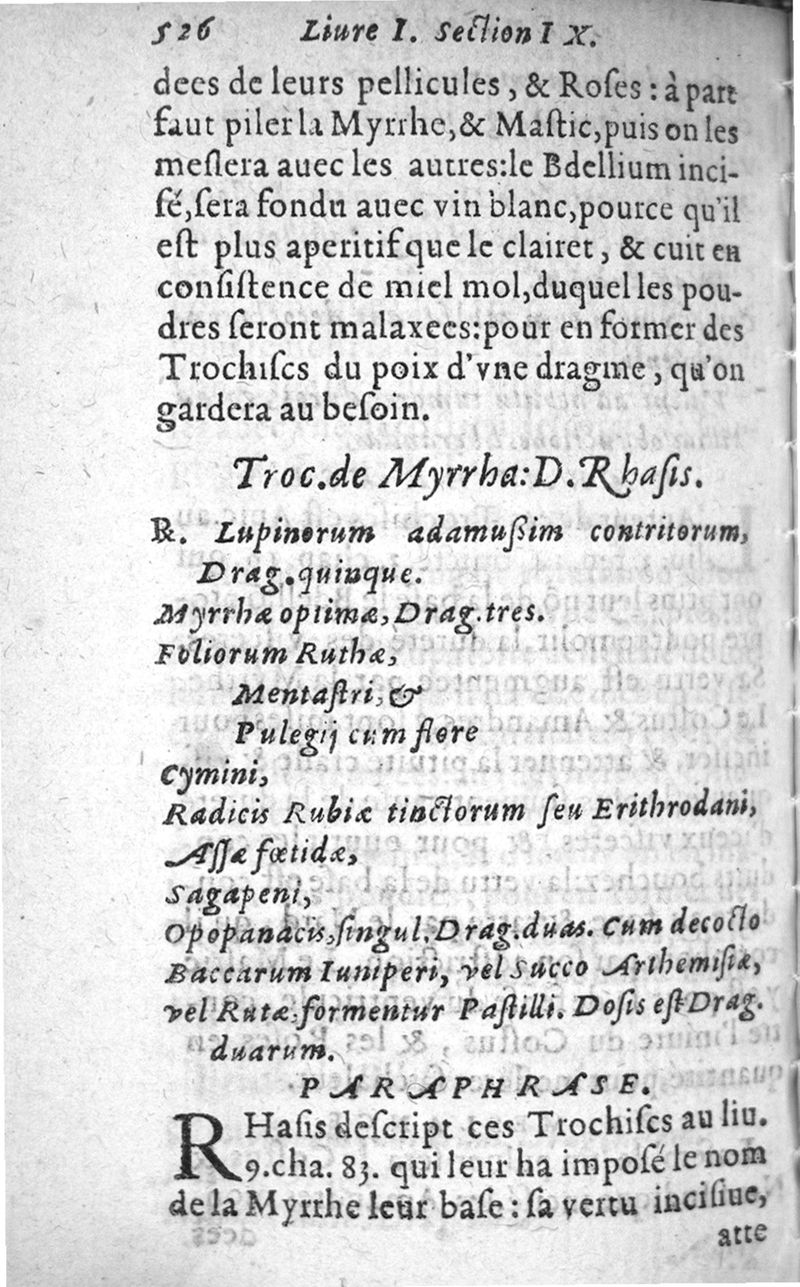 526 Liure I. Section I X.
dees de leurs pellicules, & Roſes : à part
faut piler la Myrrhe, & Maſtic, puis on les
meſlera auec les autres: le Bdellium inci-
ſé, ſera fondu auec vin blanc, pource qu'il
eſt plus aperitif que le clairet, & cuit en
conſiſtence de miel mol, duquel les pou-
dres ſeront malaxees: pour en former des
Trochiſcs du poix d'vne dragme, qu'on
gardera au beſoin.
Troc. de Myrrha: D. Rhaſis.
℞. Lupinorum adamußim contritorum,
Drag. quinque.
Myrrhæ optimæ, Drag. tres.
Foliorum Ruthæ,
Mentaſtri, &
Pulegij cum flore
Cymini,
Radicis Rubiæ tinctorum ſeu Erithrodani,
Aſſæ fœtidæ,
Sagapeni,
Opopanacis, ſingul. Drag. duas. Cum decocto
Baccarum Iuniperi, vel Succo Arthemiſiæ,
vel Rutæ: formentur Paſtilli. Doſis eſt Drag.
duarum.
PARAPHRASE.
RHaſis deſcript ces Trochiſcs au liu.
9. cha. 83. qui leur ha impoſé le nom
de la Myrrhe leur baſe : ſa vertu inciſiue,
atte